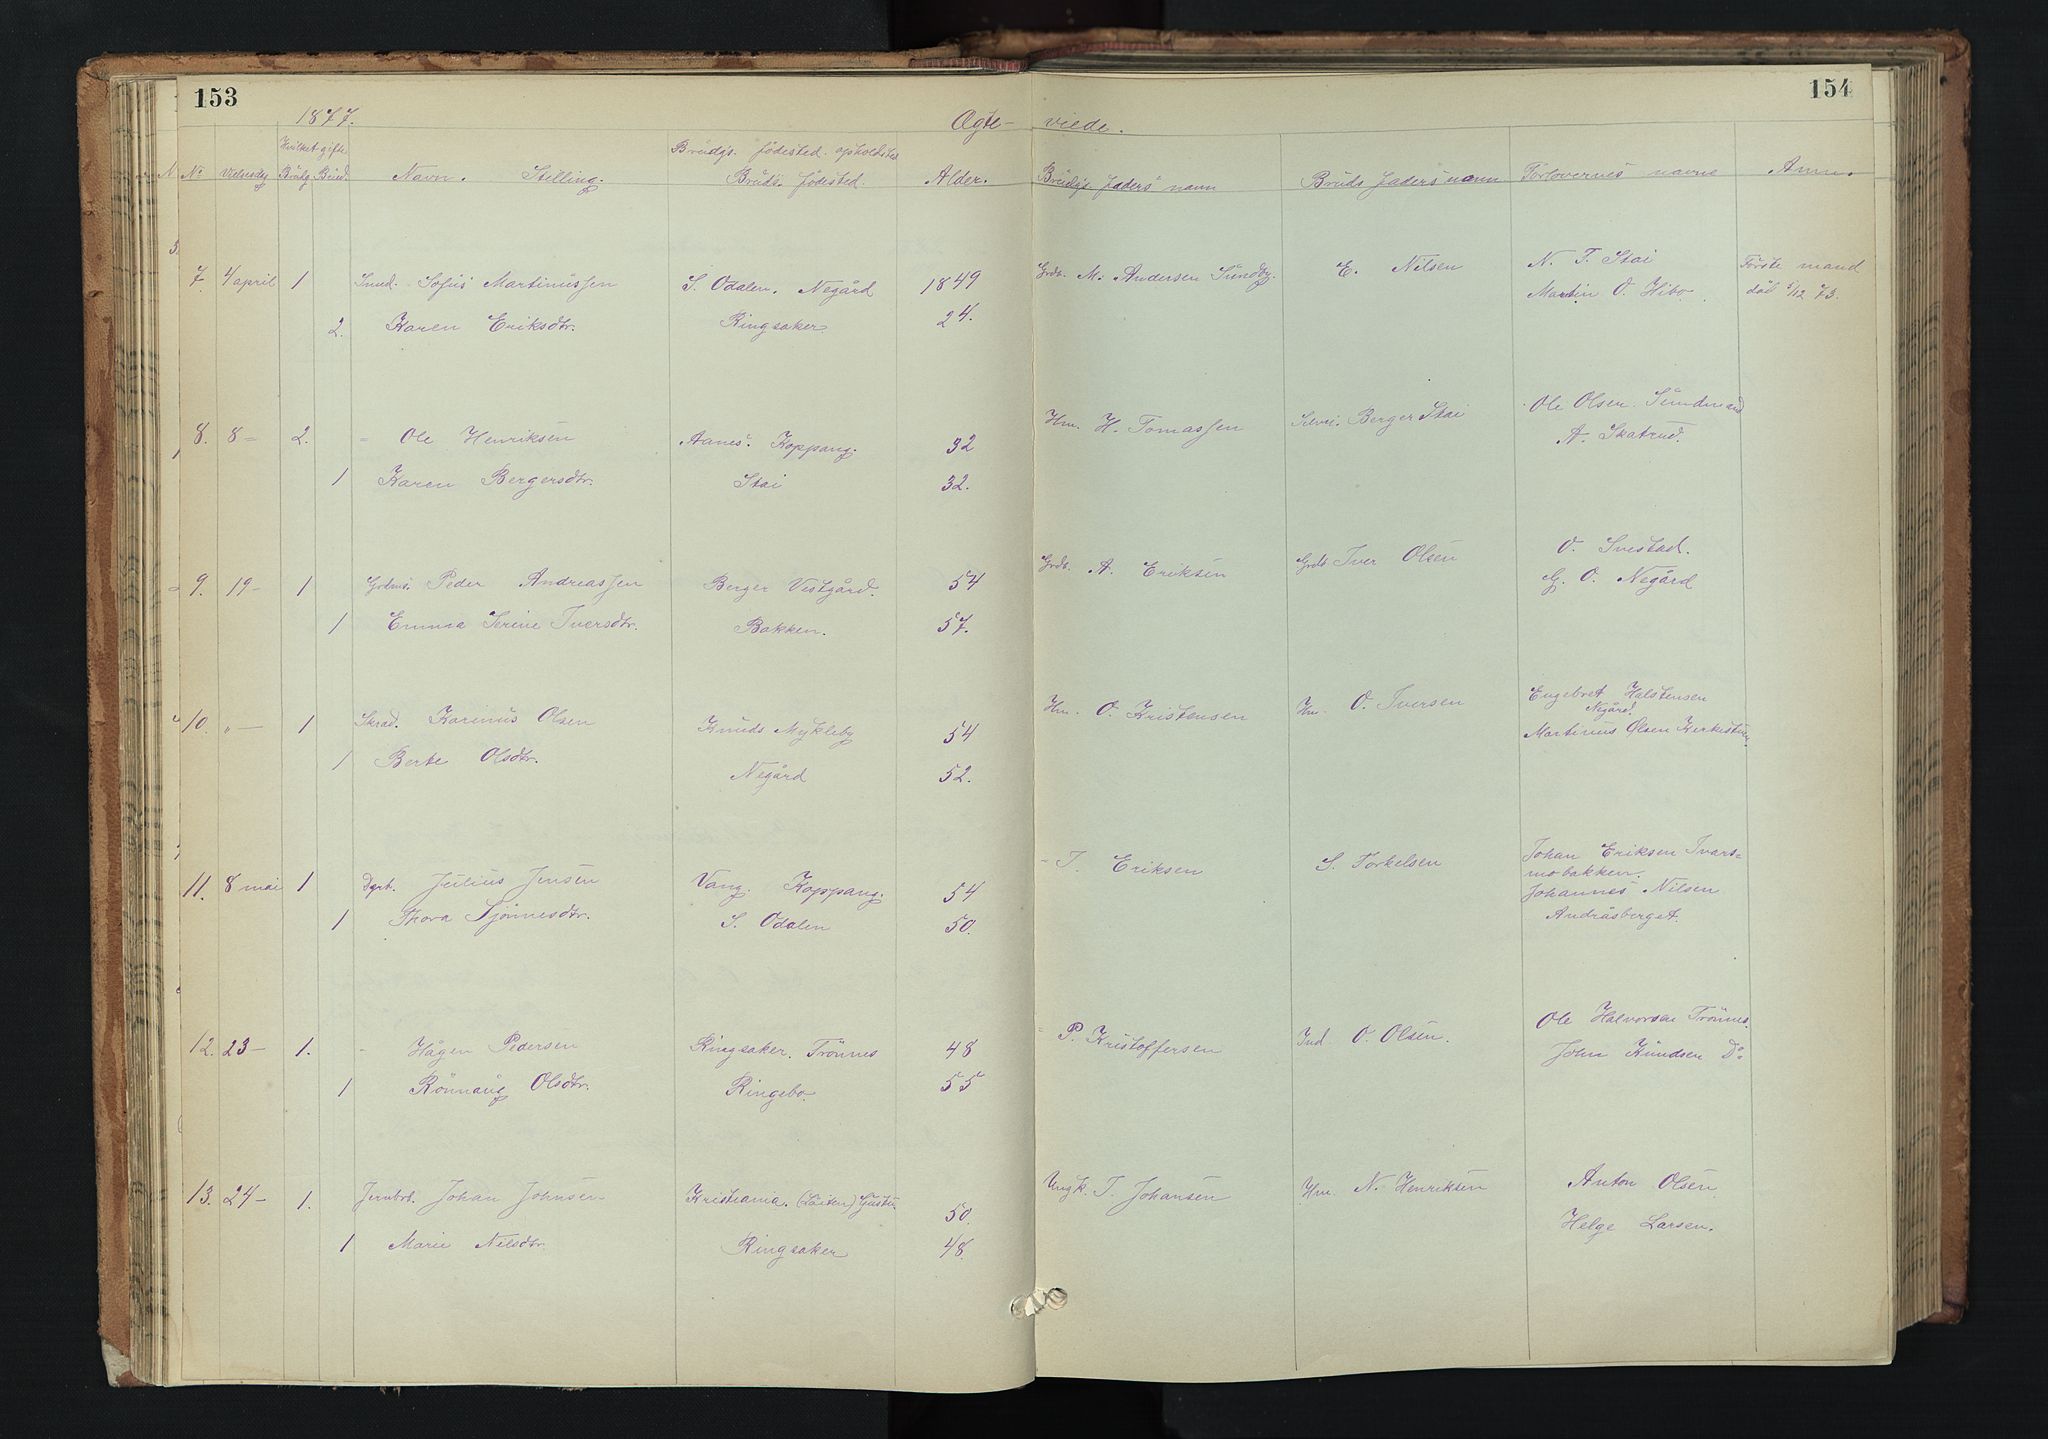 153
154
1877.
Ægte- viede.
Hvilket gifte.
Brudgs. fødested. opholdsted
No Vielsesdag Brudg. Brud. Navn. Stilling. Bruds fødested. Alder. Brudgs faders navn Bruds faders navn Forlovernes navne Anm.
7. 4/april 1 Smed. Sofus Martinussen S. Odalen. Negård 1849 Grdb. M. Andersen Sundby. E. Nilsen N. T. Stai Første mand
Martin O. Hibo død 5/12 73.
2. Karen Eriksdtr. Ringsaker 24.
8. 8 - 2. - Ole Henriksen Aanes. Koppang. 32 Hm. H. Tomassen Selvei. Berger Stai Ole Olsen Sundmand
A. Skatrud.
1 Karen Bergersdtr. Stai 32.
9. 19 - 1 Grdms. Peder Andreassen Berger Vestgård. 54 Grdb. A. Eriksen Grdb Iver Olsen O. Svestad.
G. O. Negård
1 Emma Serine Iversdtr. Bakken. 57.
10. " - 1 Skrad. Karinus Olsen Knuds Mykleby 54 Hm. O. Kristensen Hm. O. Iversen Engebret Halstensen
Negård.
Martinus Olsen Kirkestuen.
1 Berte Olsdtr. Negård 52.
11. 8 mai 1 Dgrb. Julius Jensen Vang. Koppang. 54 - J. Eriksen S. Torkelsen Johan Eriksen Ivars=
mobakken.
Johannes Nilsen
Andråsberget.
1 Thora Sjønnesdtr. S. Odalen 50.
12. 23 - 1. - Hågen Pedersen Ringsaker. Trønnes 48 - P. Kristoffersen Ind. O. Olsen. Ole Halvorsen Trønnes.
John Knudsen Do
1 Rønnaug Olsdtr. Ringebo. 55
13. 24 - 1. Jernbrb. Johan Johnsen Kristiania. 50. Ungk. J. Johansen Hm. N. Henriksen Anton Olsen
Helge Larsen.
1 Marie Nilsdtr. Ringsaker 48.